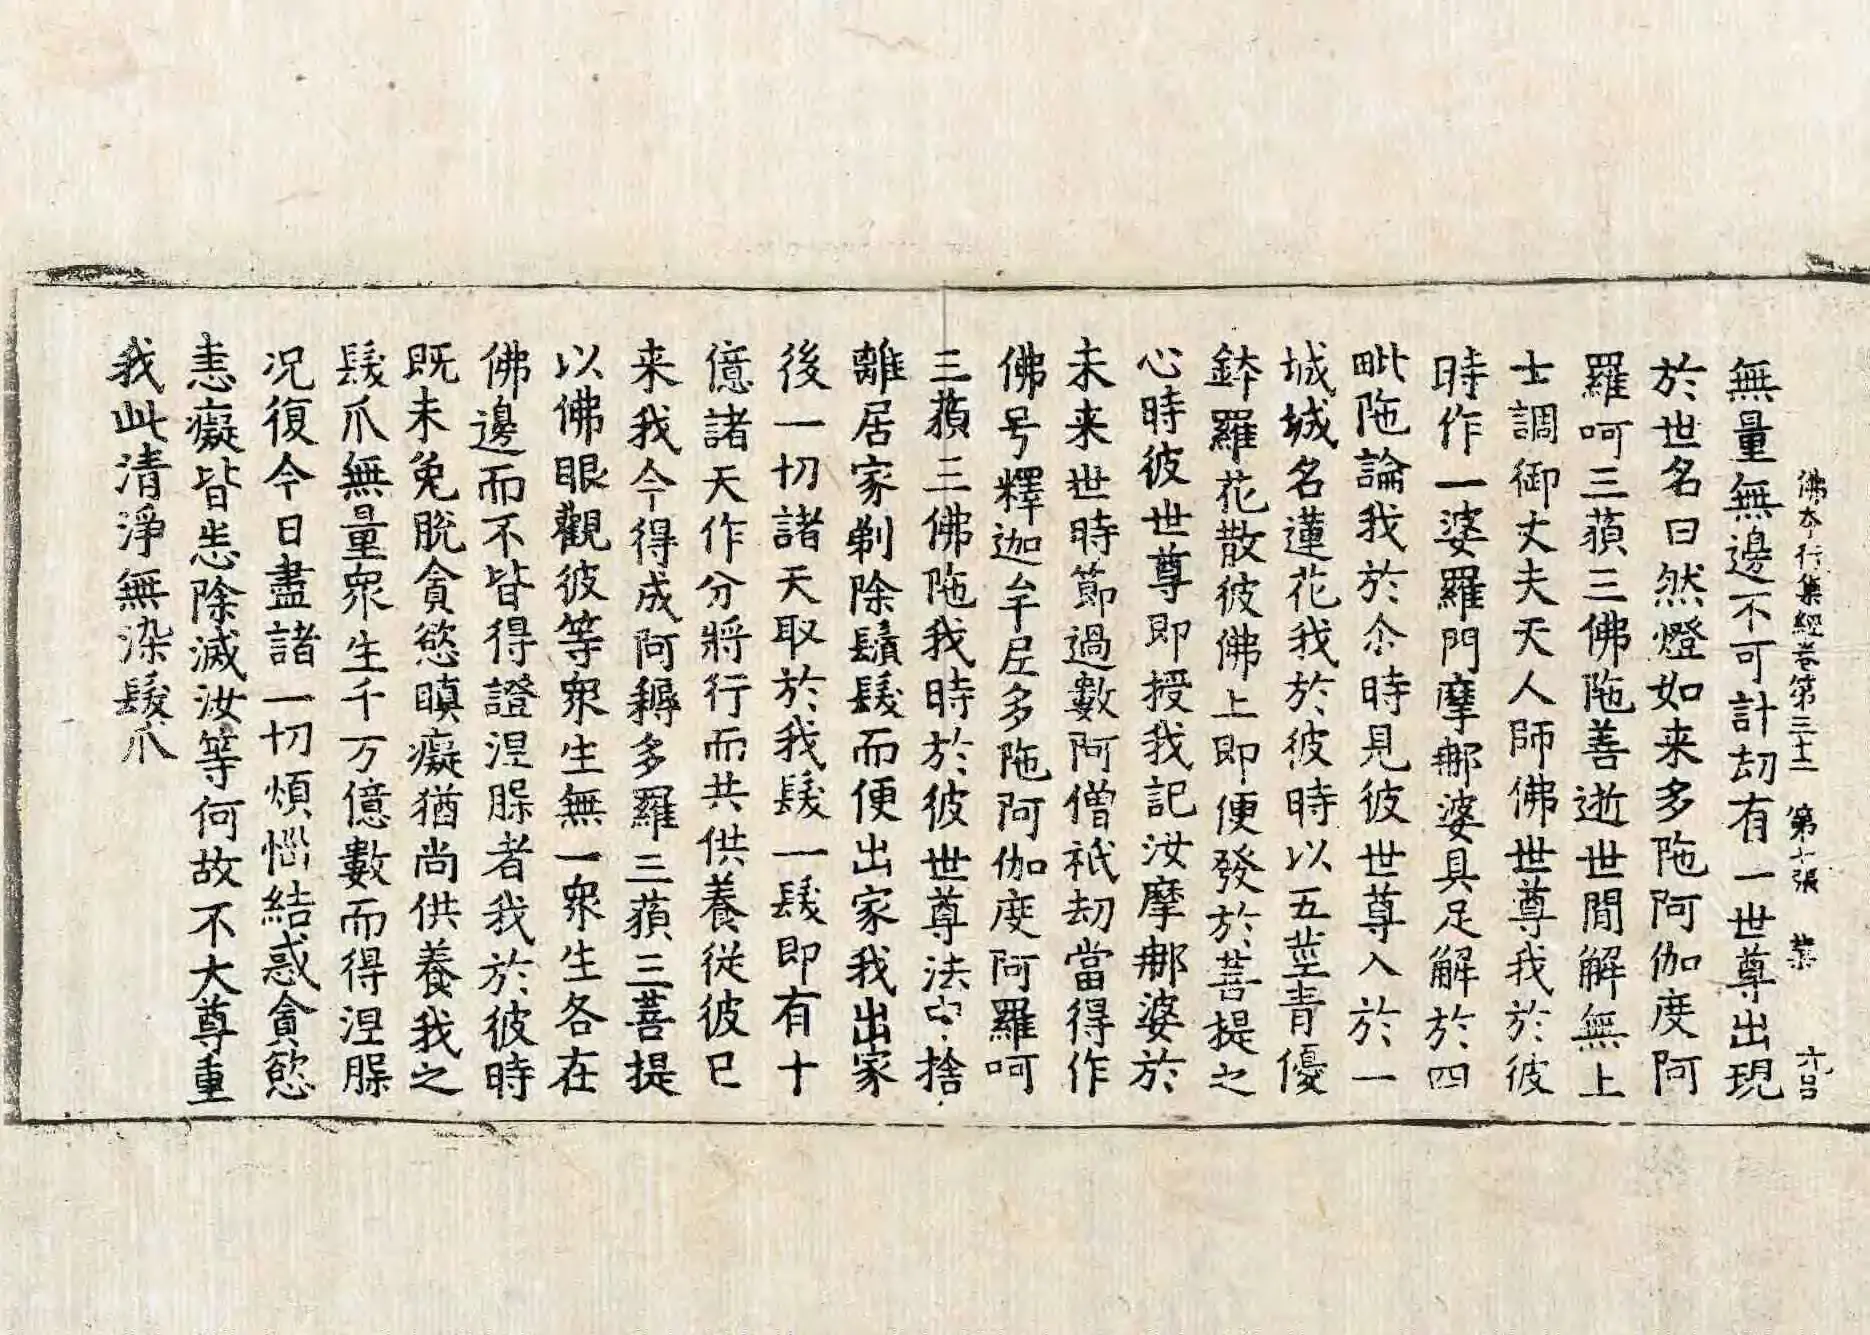 佛夲行集經卷第三十二 第七張 業
無量無邊不可計劫有一世尊出現
於世名曰然燈如来多陁阿伽度阿
羅呵三藐三佛陁善逝世閒解無上
士調御丈夫天人師佛世尊我於彼
時作一婆羅門摩那婆具足解於四
毗陁論我於尒時見彼世尊入於一
城城名蓮花我於彼時以五莖青優
鉢羅花散彼佛上即便發於菩提之
心時彼世尊即授我記汝摩那婆於
未来世時節過數阿僧祇劫當得作
佛号釋迦牟尼多陁阿伽度阿羅呵
三藐三佛陁我時於彼世尊法中捨
離居家剃除鬚髮而便出家我出家
後一切諸天取於我髮一髮即有十
億諸天作分將行而共供養從彼已
来我今得成阿耨多羅三藐三菩提
以佛眼觀彼等衆生無一衆生各在
佛邊而不皆得證涅槃者我於彼時
既未免脫貪慾瞋癡猶尚供養我之
髮爪無量衆生千万億數而得涅槃
况復今日盡諸一切煩惱結惑貪慾
恚癡皆悉除滅汝等何故不大尊重
我此清淨無染髮爪